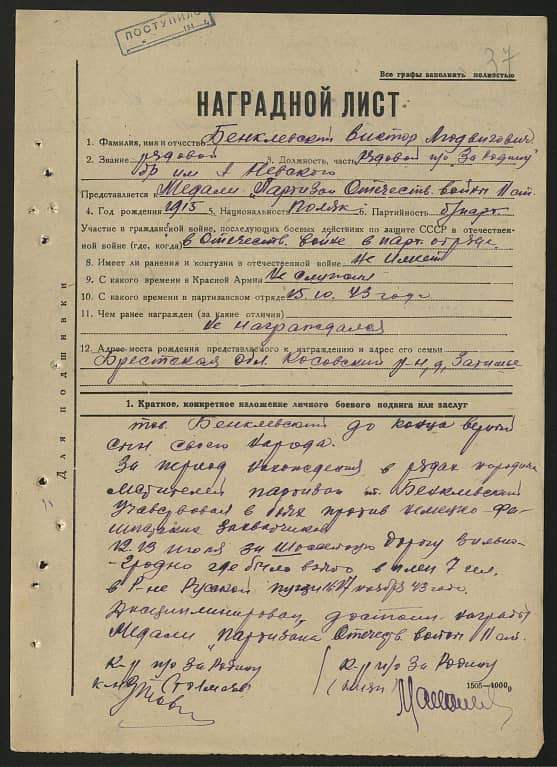 ПОСТУПИЛО
37
Все графы заполнять полностью
НАГРАДНОЙ ЛИСТ
1. Фамилия, имя и отчество Бенклевский Виктор Людвигович
2. Звание рядовой 3. Должность, часть рядовой п/о За Родину
бр им А Невского
Представляется к Медали "Партизан Отечеств. войны II ст.
4. Год рождения 1915 5. Национальность Поляк 6. Партийность б/парт.
Участие в гражданской войне, последующих боевых действиях по защите СССР в отечествен-
ной войне (где, когда) в Отечеств. войне в парт. отряде.
8. Имеет ли ранения и контузии в отечественной войне не имеет
9. С какого времени в Красной Армии Не служил
10. С какого времени в партизанском отряде 15.10.43 года
11. Чем ранее награжден (за какие отличия)
Не награждался
12. Адрес места рождения представляемого к награждению и адрес его семьи
Брестская обл. Косовский р-н, д. Затишье
Для подшивки
1. Краткое, конкретное изложение личного боевого подвига или заслуг
тов. Бенклевский до конца верный
сын своего народа.
За период нахождения в рядах народных
мстителей партизан т. Бенклевский
Участвовал в боях против немецко-фа-
шистских захватчиков
12.13 июля за дорогу Вильно-
-Гродно где было взято в плен 7 чел.
в р-не Русской пущи 27 ноября 43 года.
Дисциплинирован, достоин награды
Медали "Партизана Отечеств войны II ст.
К-р п/о За Родину
К-р п/о За Родину
1505—4000